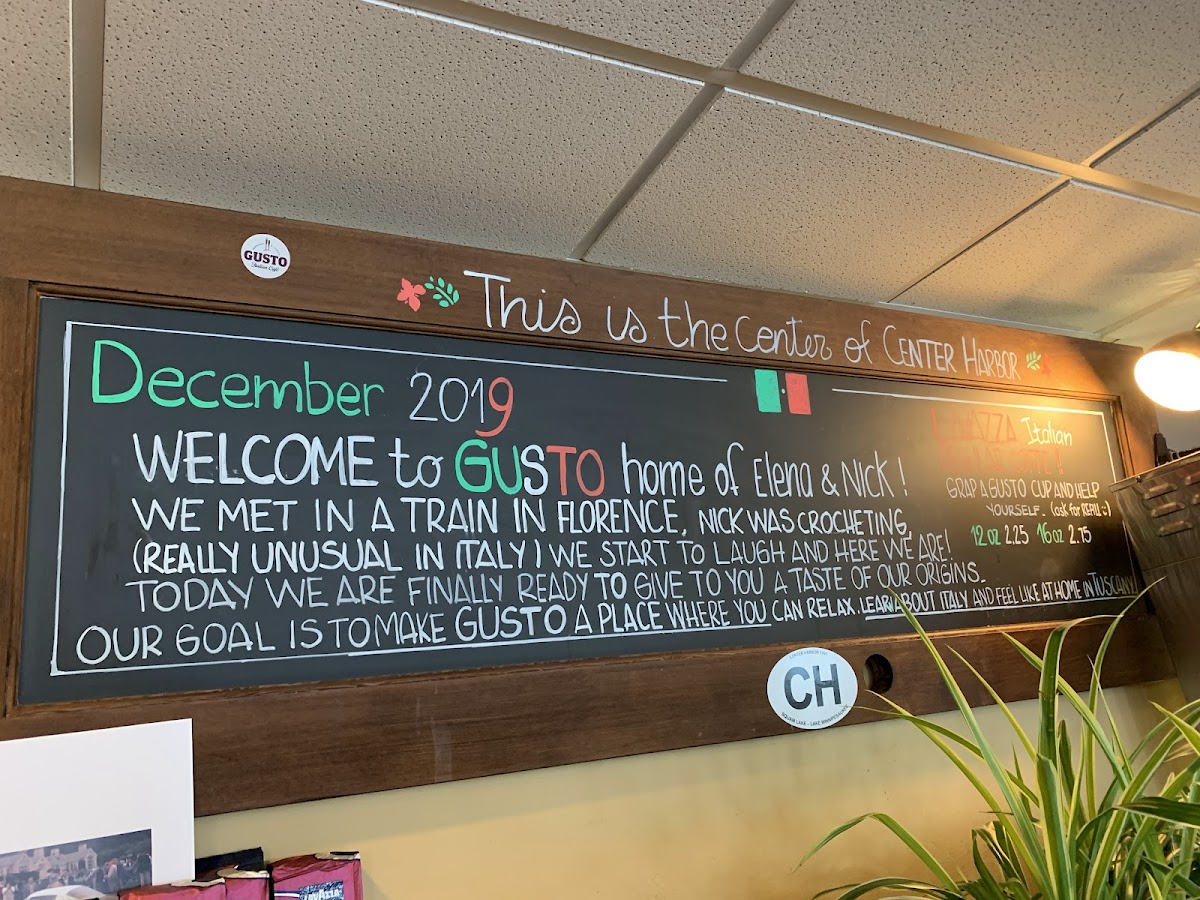 GUSTO
Italian Café
This is the Center of CENTER HARBOR
December 2019
WELCOME to GUSTO home of Elena & NICK!
WE MET IN A TRAIN IN FLORENCE, NICK WAS CROCHETING,
(REALLY UNUSUAL IN ITALY) WE START TO LAUGH AND HERE WE ARE!
TODAY WE ARE FINALLY READY TO GIVE TO YOU A TASTE OF OUR ORIGINS.
OUR GOAL IS TO MAKE GUSTO A PLACE WHERE YOU CAN RELAX. LEARN ABOUT ITALY AND FEEL LIKE AT HOME IN TUSCANY
LAVAZZA Italian
GRAP A GUSTO CUP AND HELP
YOURSELF. (ask for REFILL :)
12 oz 2.25 16 oz 2.75
CH
SQUAM LAKE - LAKE WINNIPESAUKEE
LAVAZZA